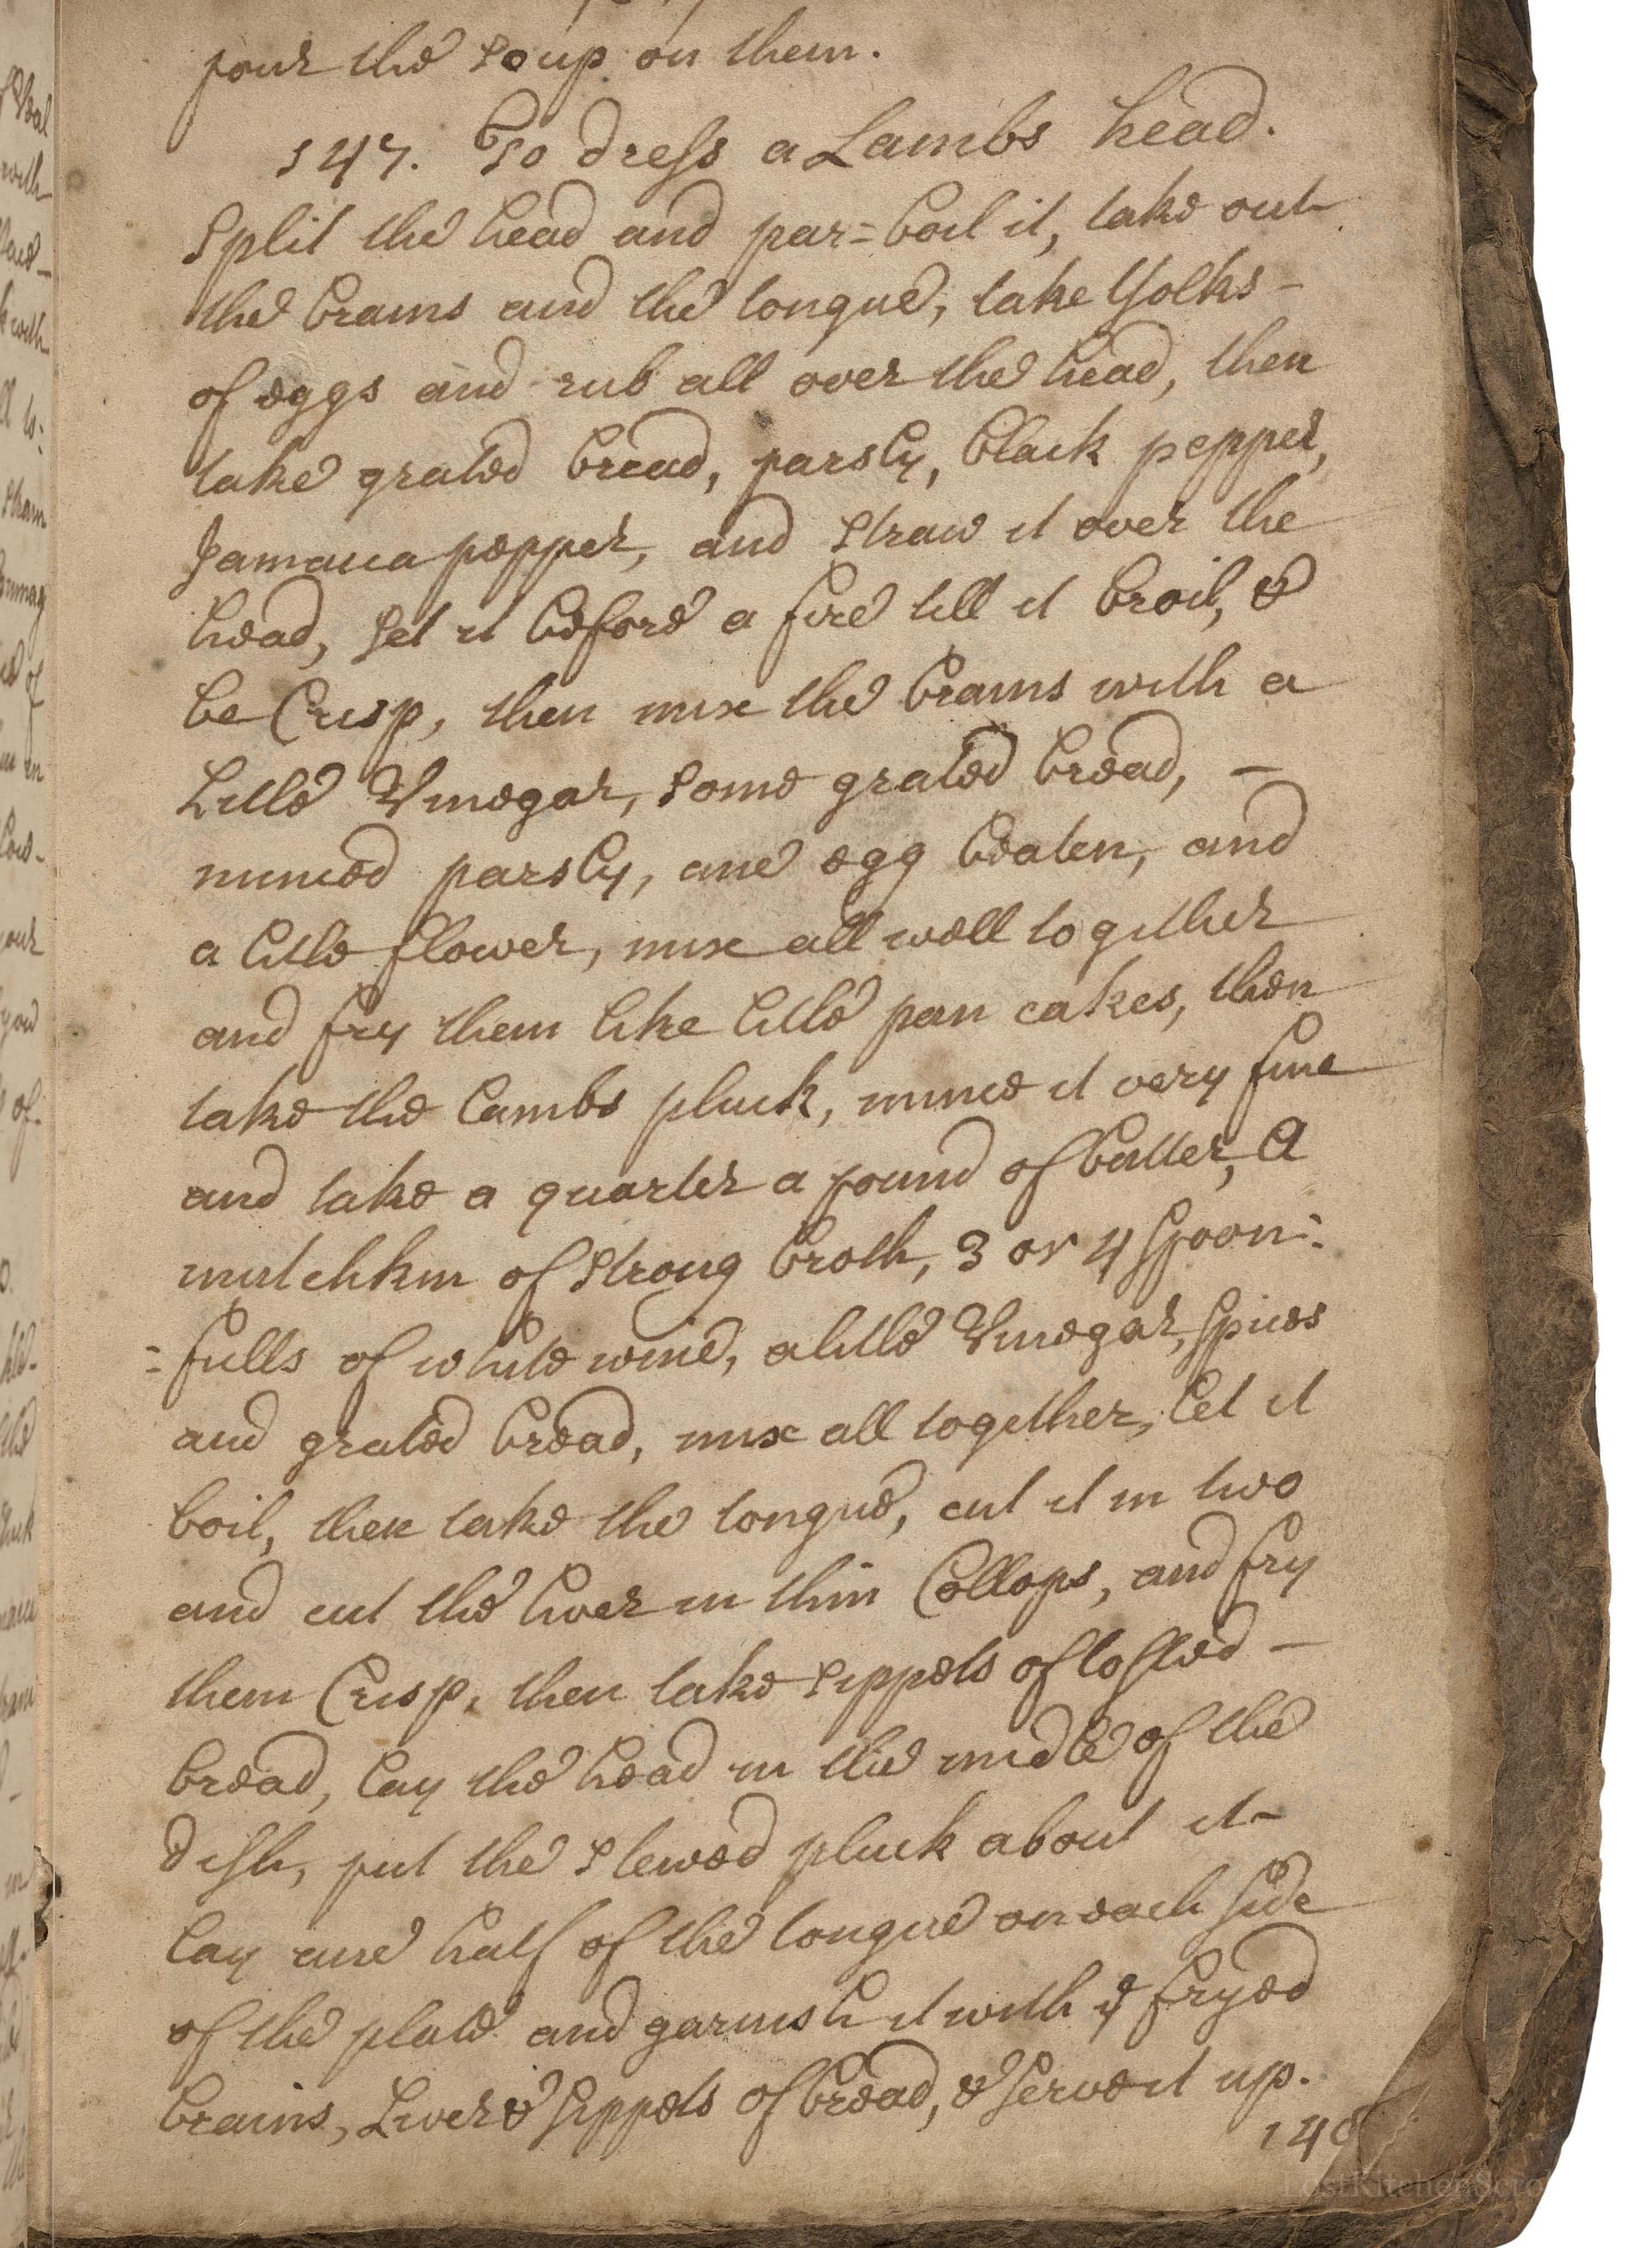 pour the soup on them.
147. To dress a Lambs head.
Split the head and par=boil it, take out
the brains and the tongue, take Yolks -
of eggs and rub all over the head, then
take grated bread, parsly, black pepper,
Jamaica pepper, and straw it over the
head, set it before a fire till it broil, &
be Crisp, then mix the brains with a
Little Vinegar, some grated bread, -
minced parsly, ane egg beaten, and
a little flower, mix all well together
and fry them like little pan cakes, then
take the lambs pluck, mince it very fine
and take a quarter a pound of butter, A
mutchkin of strong broth, 3 or 4 spoon=
=fulls of white wine, a little Vinegar, spices
and grated bread, mix all together, let it
boil, then take the tongue, cut it in two
and cut the liver in thin Collops, and fry
them Crisp, then take sippets of tosted -
bread, lay the head in the midle of the
dish, put the stewed pluck about it -
lay ane half of the tongue on each side
of the plate and garnish it with ye fryed
brains, Liver & sippets of bread, & serve it up.
148
of Veal
with
k with
strain
of
in
your
you
of
the
LostKitchenScro